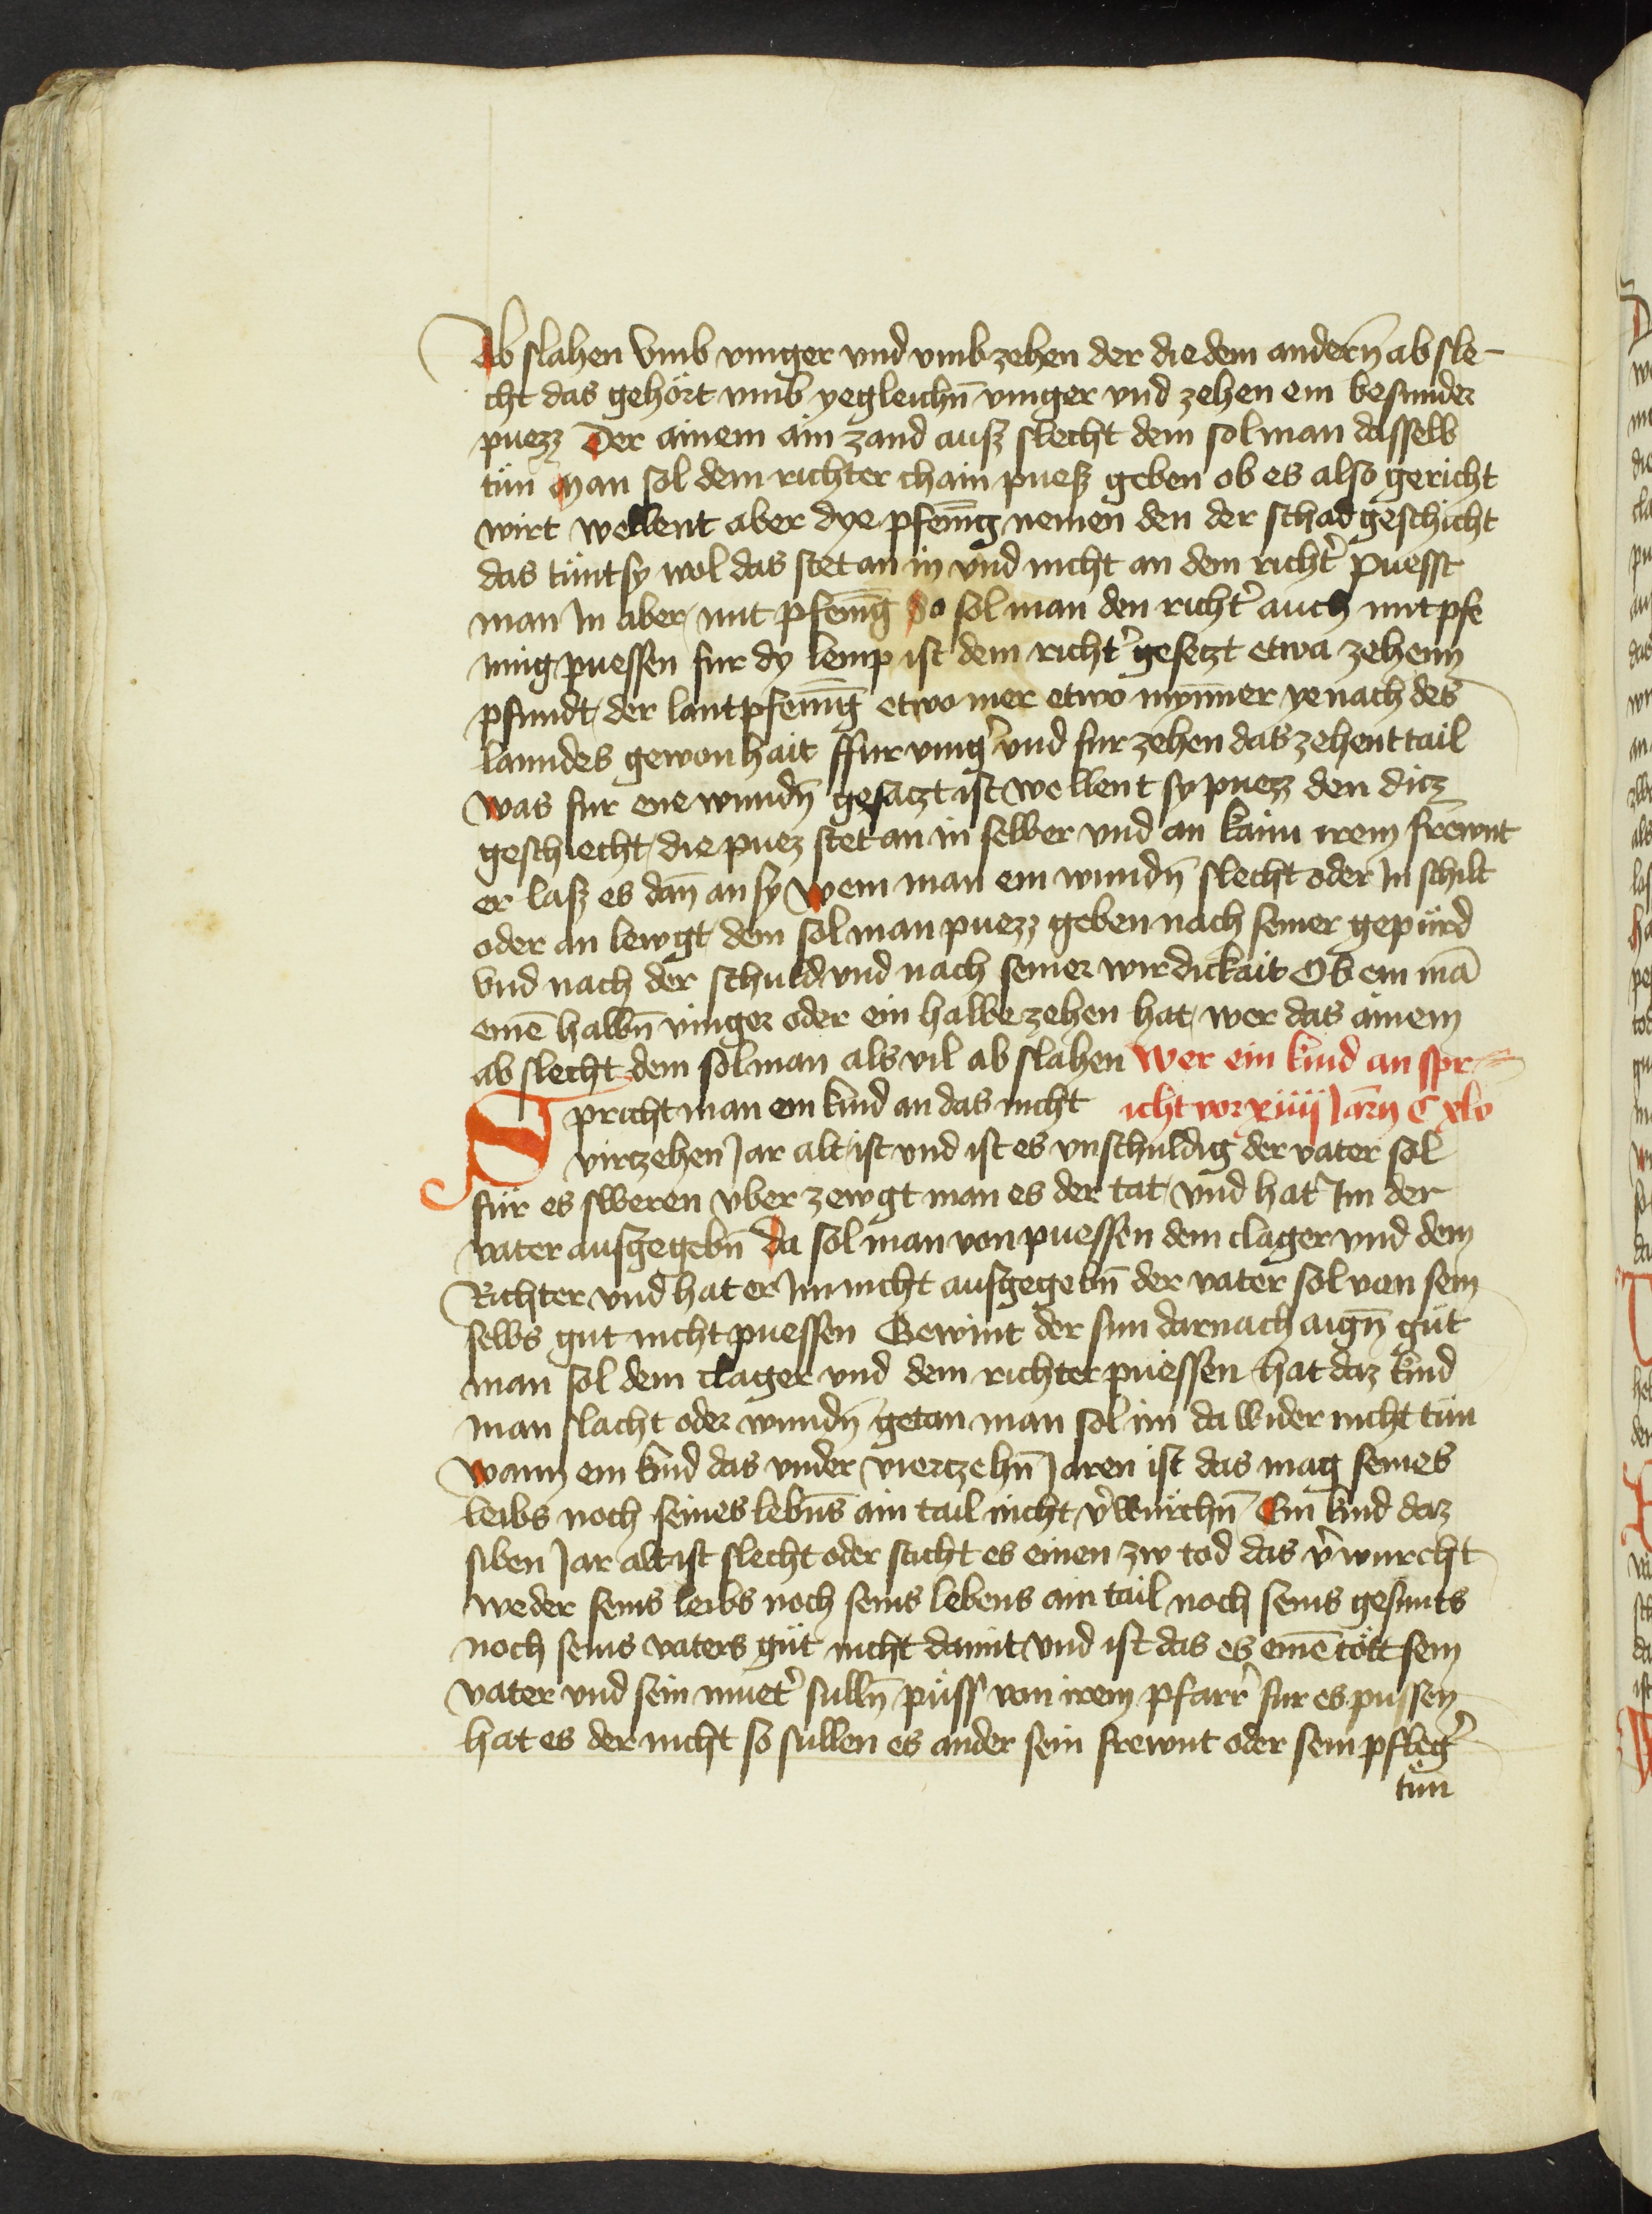 Ab slahen Vmb vinger vnd vmb zehen der die dem andern̄ ab sle-
cht das gehört vmb yegleichn̄ vinger vnd zehen ein besunder
puezz Der ainem ain zand ausz slecht dem sol man dasselb
tün Man sol dem richter chain puesz geben ob es also gericht
wirt wellent aber dye pfenīg nemen den der schad geschicht
das tünt sy wol das stet an in vnd nicht an dem richt̉ puesst
man In aber mit pfenīg So sol man den richt̉ auch mit pfe
ning puessen fur dy lemp ist dem richt̉ gesetzt etwa zehenn
pfundt der lantpfenīg etwo mer etwo mynner ye nach des
lanndes gewonhait ffur ving̉ vnd fur zehen das zehent tail
was fur ene wundn̄ gesatzt ist wellent sy puezz den ditz
geschiecht die puez stet an in selber vnd an kainn irem frewnt
er lasz es dan̄ an sy wem man ein wundn̄ slecht oder In schilt
oder an lewgt dem sol man puezz geben nach seiner gepürd
vnd nach der schuld vnd nach seiner wirdickait Ob ein mā
einē halbn̄ vinger oder ein halbe zehen hat wer das ainem
ab slecht dem sol man als vil ab slahen Wer ein kind an spr-
Spricht man ein kind an das nicht icht vor xiiij Jarn̄ C xlv
virczehen Jar alt ist vnd ist es vnschuldig der vater sol
für es sweren vber zewgt man es der tat vnd hat̉ Im der
vater ausgegebn̄ da sol man von puessen dem clager vnd dem
Richter vnd hat er Im nicht ausgegebn̄ der vater sol von sein
selbs gut nicht puessen Gewint der sun darnach aign̄ güt
man sol dem clager vnd dem richter püessen hat daz kind
man slacht oder wundn̄ getan man sol im da wider nicht tün
wann ein kind das vnder viertzehn̄ Jaren ist das mag seines
leibs noch seines lebn̄s ain tail nicht v̉würchn̄ Ein kind daz
siben Jar alt ist slecht oder sticht es einen zw tod das v̉wurcht
weder seins leibs noch seins lebens ain tail noch seins gesunts
noch seins vaters güt nicht damit vnd ist das es einē tött sein
vater vnd sein muet̉ sulln̄ püss von irem pfarr̉ fur es püssen
hat es der nicht so sullen es ander sein frewnt oder sein pfleg̉
tün